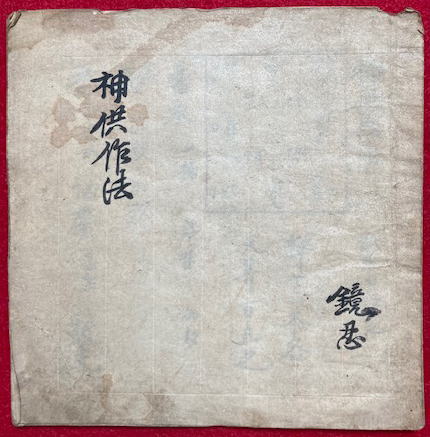 神供作法
鏡忍